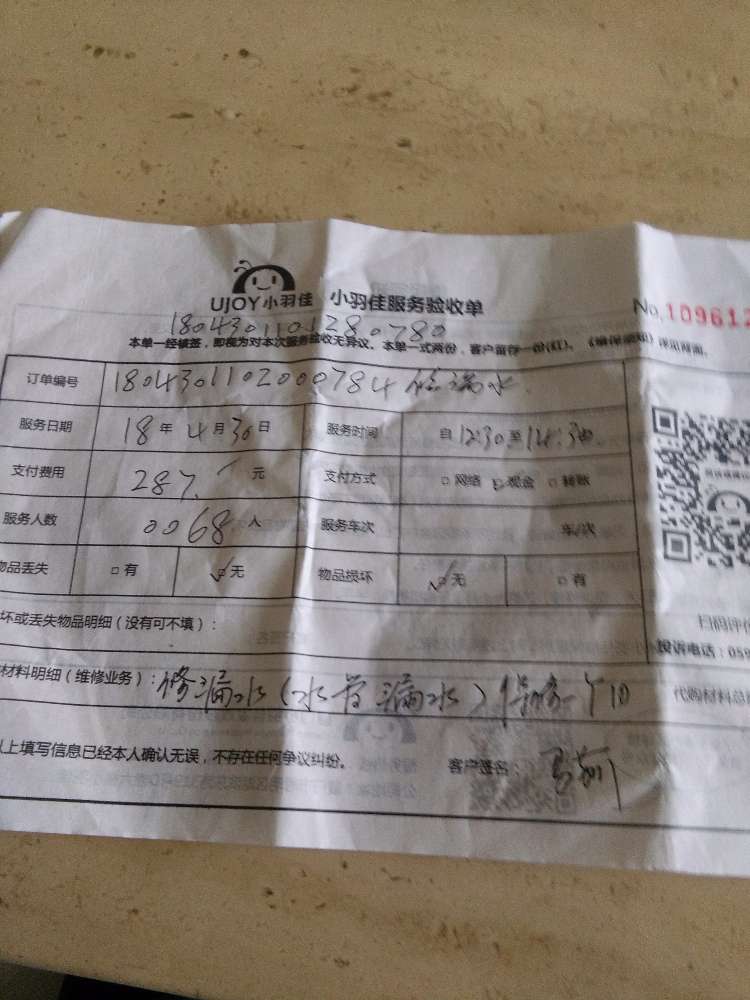 UJOY小羽佳 小羽佳服务验收单 No.109612
1804301101280780
本单一经核签，即视为对本次服务验收无异议。本单一式两份，客户留存一份(红)。
订单编号 1804301102000784 修漏水
服务日期 18年4月30日 服务时间 自12:30至14:30
支付费用 287.元 支付方式 □网络 □现金 □转账
服务人数 0068人 服务车次 车/次
物品丢失 □有 ✓□无 物品损坏 ✓□无 □有
坏或丢失物品明细（没有可不填）： 扫码评价
投诉电话：059
材料明细（维修业务）：修漏水（水管漏水）保修一个月 代购材料总
以上填写信息已经本人确认无误，不存在任何争议纠纷。 客户签名：